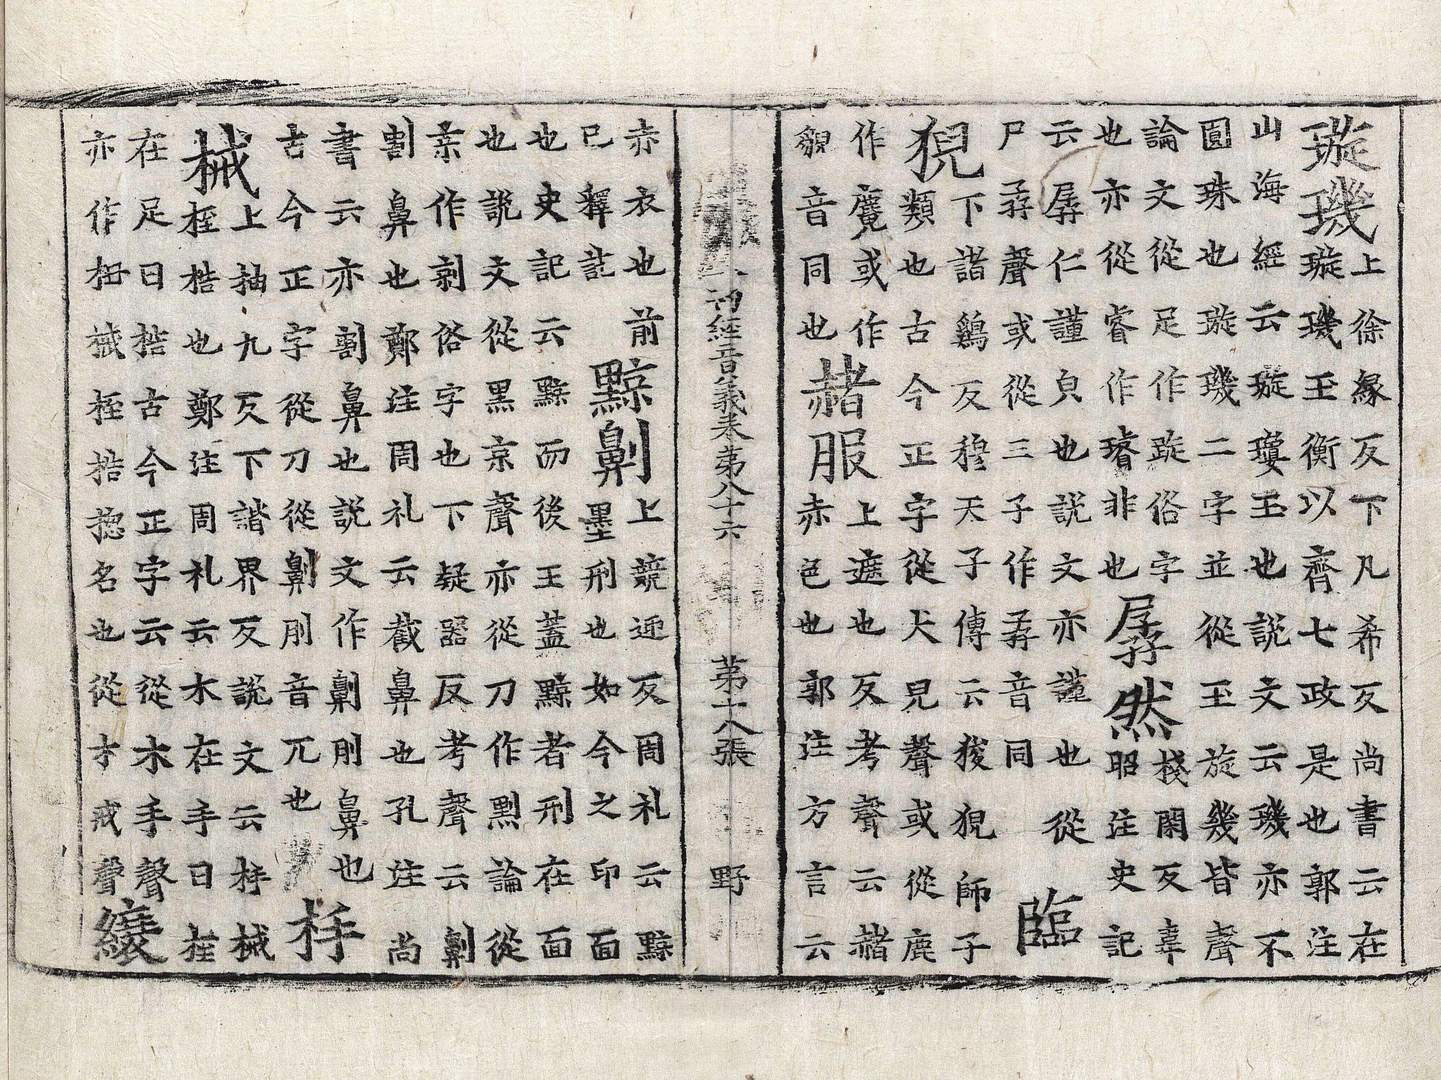 璇璣
上徐縁反下凡希反尚書云在
璇璣玉衡以齊七政是也郭注
山海經云璇瓊玉也說文云璣亦不
圓珠也璇璣二字並從玉旋幾皆聲
論文從足作踨俗字
也亦從睿作璿非也
孱然
棧閑反韋
昭注史記
云孱仁謹皃也說文亦謹也從
尸孨聲或從三子作孨音同
臨
猊
下詣鷄反穆天子傳云狻猊師子
類也古今正字從犬兒聲或從鹿
作麑或作
貎音同也
赭服
上遮也反考聲云赭
赤色也郭注方言云
切經音義卷第八十六 第十八張 野
赤衣也前
已釋訖
黥劓
上競迎反周礼云黥
墨刑也如今之印面
也史記云黥而後王蓋黥者刑在面
也說文從黑京聲亦從刀作剠論從
京作剥俗字也下疑器反考聲云劓
割鼻也鄭注周礼云截鼻也孔注尚
書云亦割鼻也說文作劓刖鼻也
古今正字從刀從鼻刖音兀也
杽
械
上抽九反下諧界反說文云杽械
桎梏也鄭注周礼云木在手曰桎
在足曰梏古今正字云從木手聲
亦作杻械桎梏惣名也從才戒聲